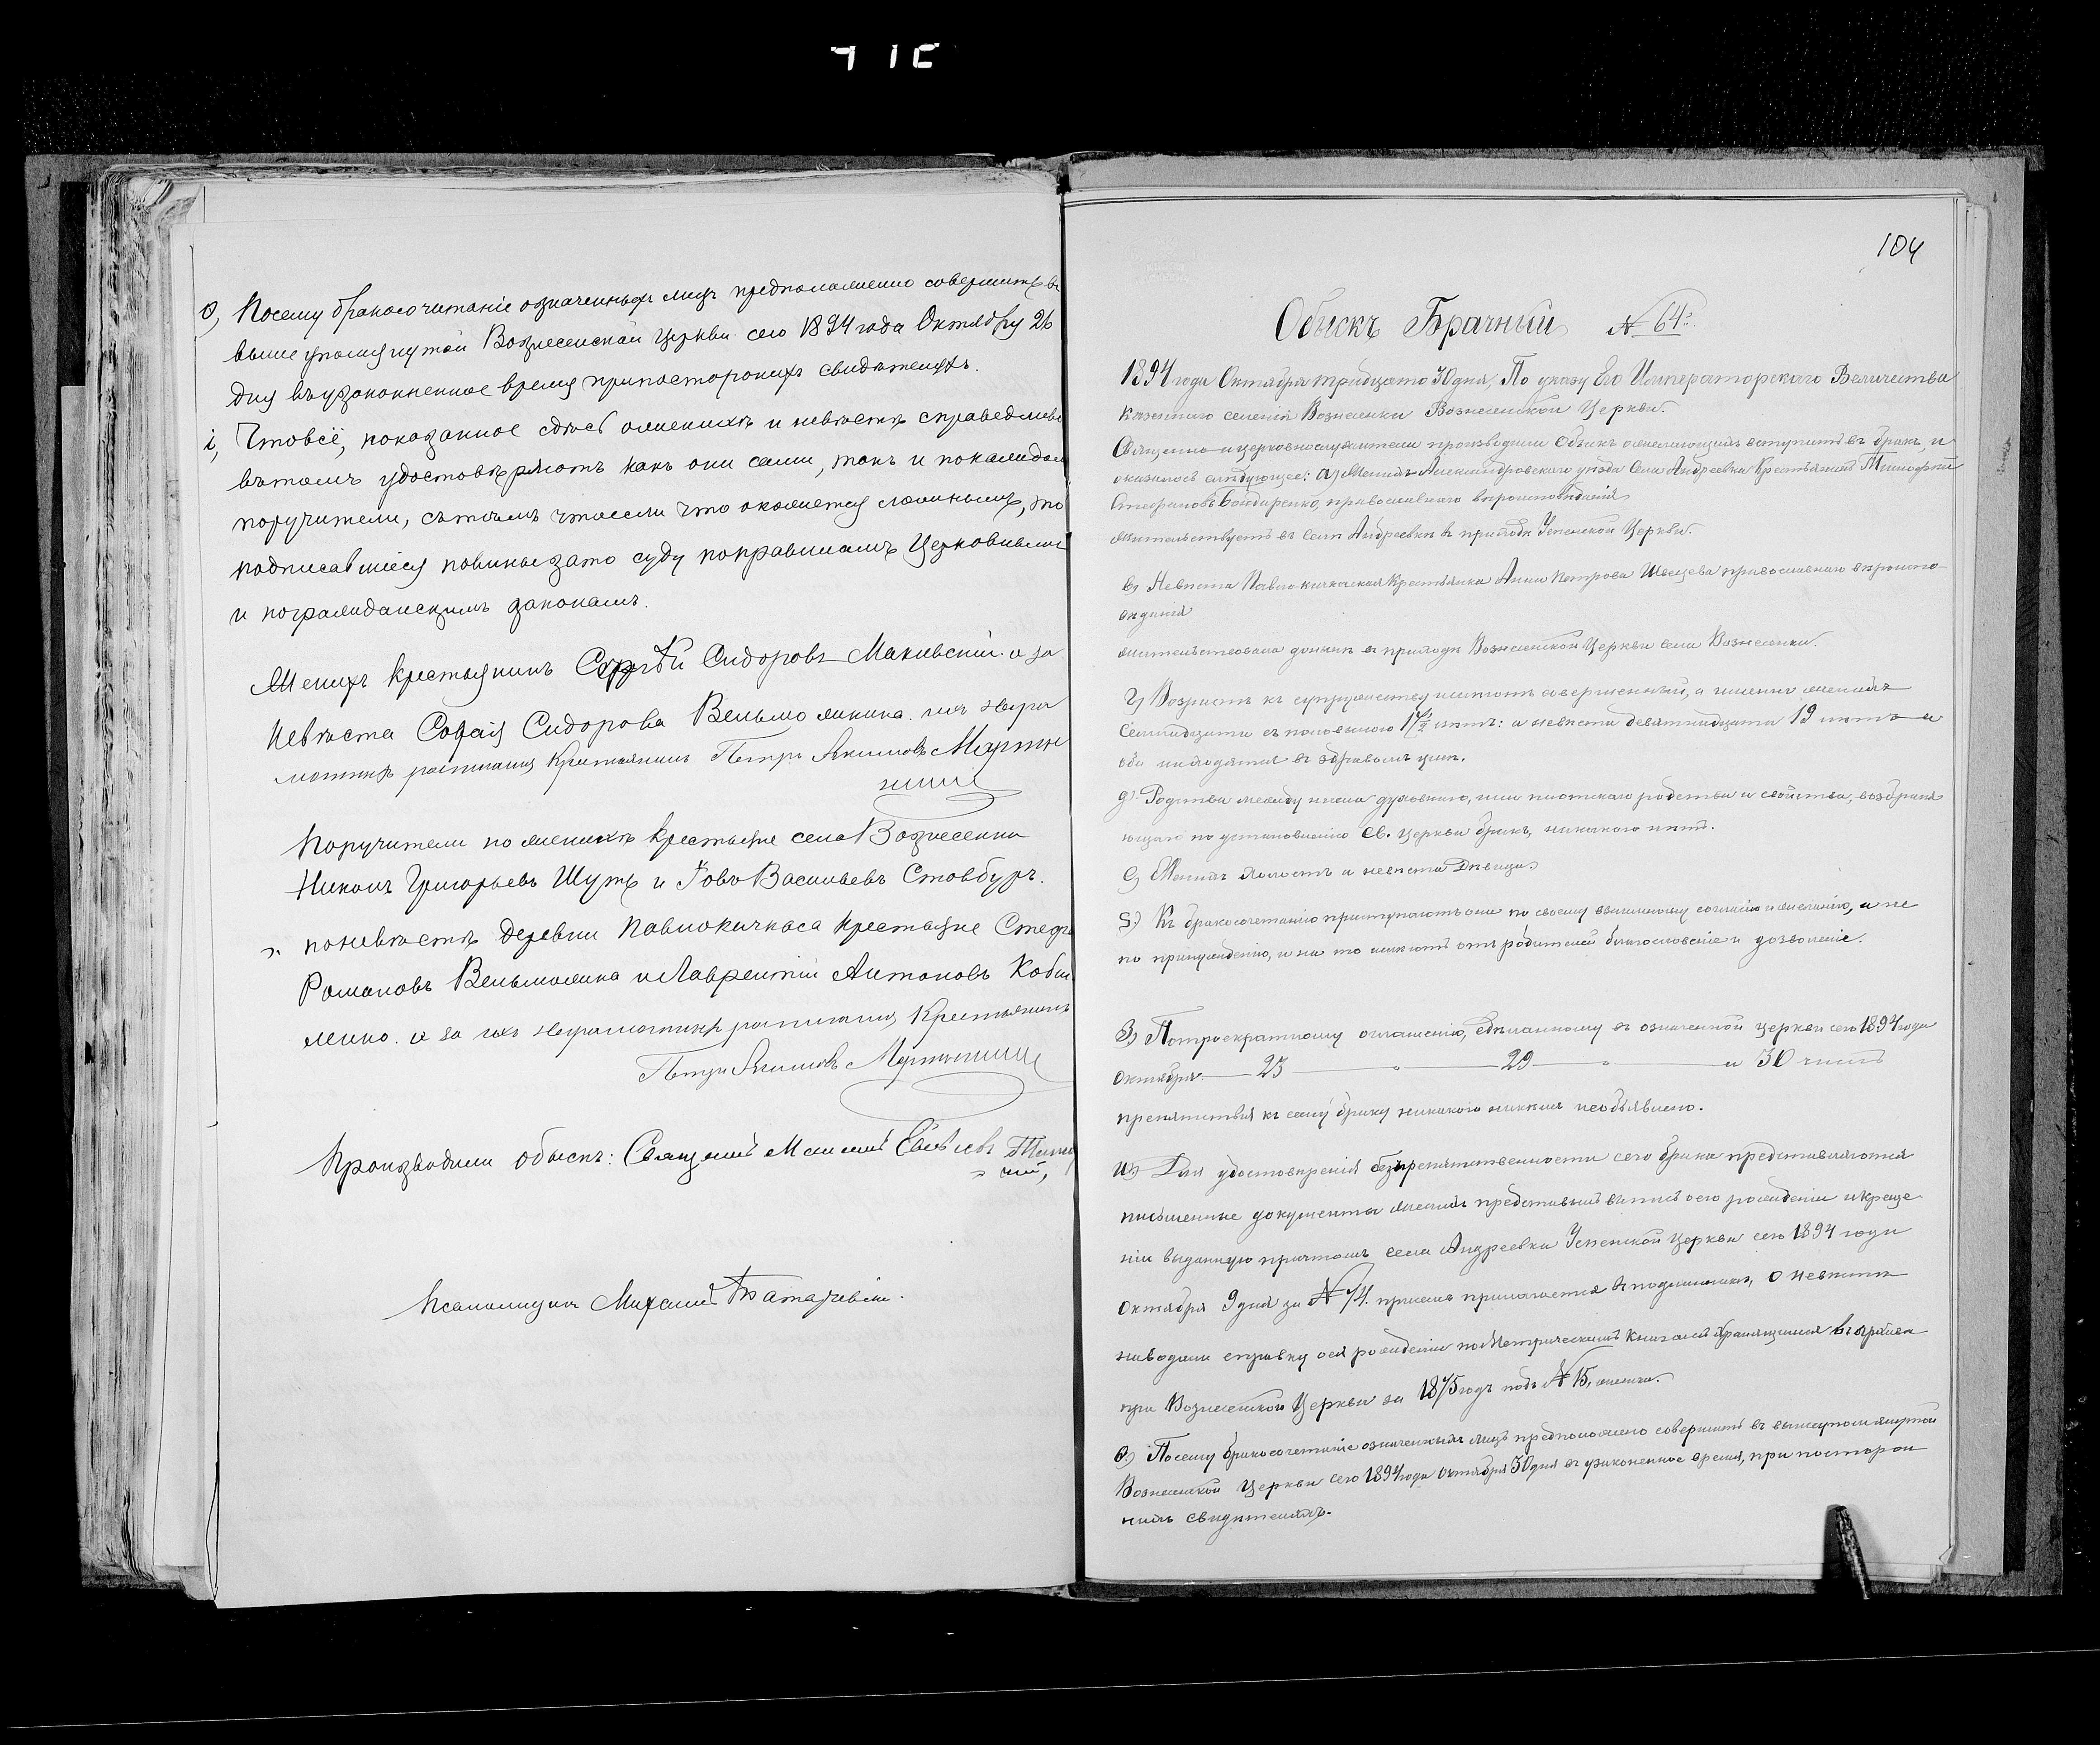 ѳ, Посему бракосочитаніе означенныхъ лицъ предположенно совершить въ
выше упомянутой Вознесенской Церкви сего 1894 года Октября 26
дня въ узаконненное время припостороннихъ свидѣтеляхъ.
і, Что всё, показанное здѣсь о женихѣ и невѣстѣ справедливо
вътомъ удостовѣряютъ какъ они сами, такъ и покаждомъ
поручители, сътѣмъ что если что окажется ложнымъ, то
подписавшіеся повины зато суду поправиламъ Церковнымъ
и погражданскимъ законамъ.
Женихъ Крестьянинъ Сергѣй Сидоровъ Макивскій. а за
Невѣста Софія Сидорова Вельможкина. ихъ негра
мотныхъ росписался Крестьянинъ Петръ Якимовъ Марты
Поручители по женихѣ Крестьяне села Вознесенки
Никонъ Григорьевъ Шутъ и Іовъ Васильевъ Стовбуръ.
поневѣстѣ деревни Павлокичкаса Крестьяне Стефа
Романовъ Вельможка и Лаврентій Антоновъ Кобы
ляко. а за ихъ неграмотныхъ росписался Крестьянинъ
Петръ Якимовъ
Производили обыскъ: Священникъ
Псаломщикъ Михаилъ
104
Обыскъ Брачный № 64й.
1894 года Октября тридцатого 30 дня, По указу Его Императорскаго Величества
казеннаго селенія Вознесенки Вознесенской Церкви.
Священно-и церковнослужители производили Обыскъ о желающихъ вступить въ бракъ, и
оказалось слѣдующее: а) Женихъ Александровскаго уѣзда Села Андреевки Крестьянинъ Тимофей
Стефановъ Бондаренко, православнаго вѣроисповѣданія
жительствуетъ въ селѣ Андреевки въ приходѣ Успенской Церкви.
в) Невѣста Павло-кичкаская Крестьянка Анна Петрова Швецева православнаго вѣроиспо-
вѣданія
жительствовала донынѣ въ приходѣ Вознесенской Церкви села Вознесенки.
г) Возрастъ къ супружеству имѣютъ совершенный, а именно женихъ
Семнадцати съ половиною 17½ лѣтъ: а невѣста девятнадцати 19 лѣтъ и
оба находятся въ здравомъ умѣ.
д) Родства между ними духовнаго, или плотскаго родства и свойства, возбраня
ющаго по установленію св. Церкви бракъ, никакого нѣтъ.
е) Женихъ Холостъ а невѣста Дѣвица.
ѕ) Къ бракосочетанію приступаютъ они по своему взаимному согласію и желанію, а не
по принужденію, и на то имѣютъ отъ родителей благословеніе и дозволеніе.
з) Потроекратному оглашенію, сдѣланному въ означенной церкви сего 1894 года
Октября 23 29 и 30 числъ
препятствія къ сему браку никакого никѣмъ необъявлено.
и) Для удостовѣренія безпрепятственности сего брака представляются
письменные документы женихъ представилъ выпись о его рожденіи и креще
ніи выданную причтомъ села Андреевки Успенской церкви сего 1894 года
Октября 9 дня за № 74. причемъ прилагается въ подлинникѣ, о невѣстѣ
наводили справку о ея рожденіи по Метрическимъ Книгамъ хранящимся въ архивѣ
при Вознесенской Церкви за 1875 годъ подъ № 15, женска.
ѳ) Посему бракосочетаніе означенныхъ лицъ предположено совершить въ вышеупомянутой
Вознесенской Церкви сего 1894 года Октября 30 дня въ узаконенное время, при посторон
нихъ свидѣтеляхъ.